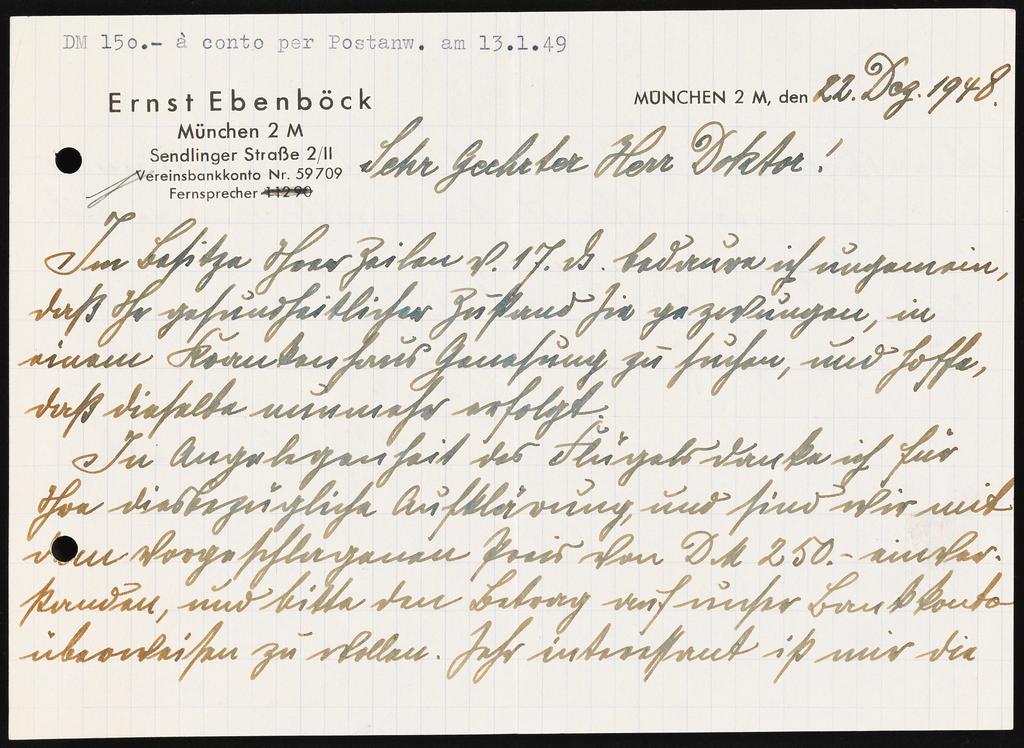 DM 150.- à conto per Postanw. am 13.1.49
Ernst Ebenböck
München 2 M
Sendlinger Straße 2/II
Vereinsbankkonto Nr. 59709
Fernsprecher 11290
MÜNCHEN 2 M, den 22. Dez. 1948.
Sehr Geehrter Herr Doktor!
Im Besitze Ihrer Zeilen v. 17. ds. bedaure ich ungemein,
daß Ihr gesundheitlicher Zustand Sie gezwungen, in
einem Krankenhaus Genesung zu suchen, und hoffe,
daß dieselbe nunmehr erfolgt.
In Angelegenheit des Flügels danke ich für
Ihre diesbezügliche Aufklärung, und sind wir mit
dem vorgeschlagenen Preis von D.M 250.- einver-
standen, und bitte den Betrag auf unser Bankkonto
überweisen zu wollen. Sehr interessant ist mir die